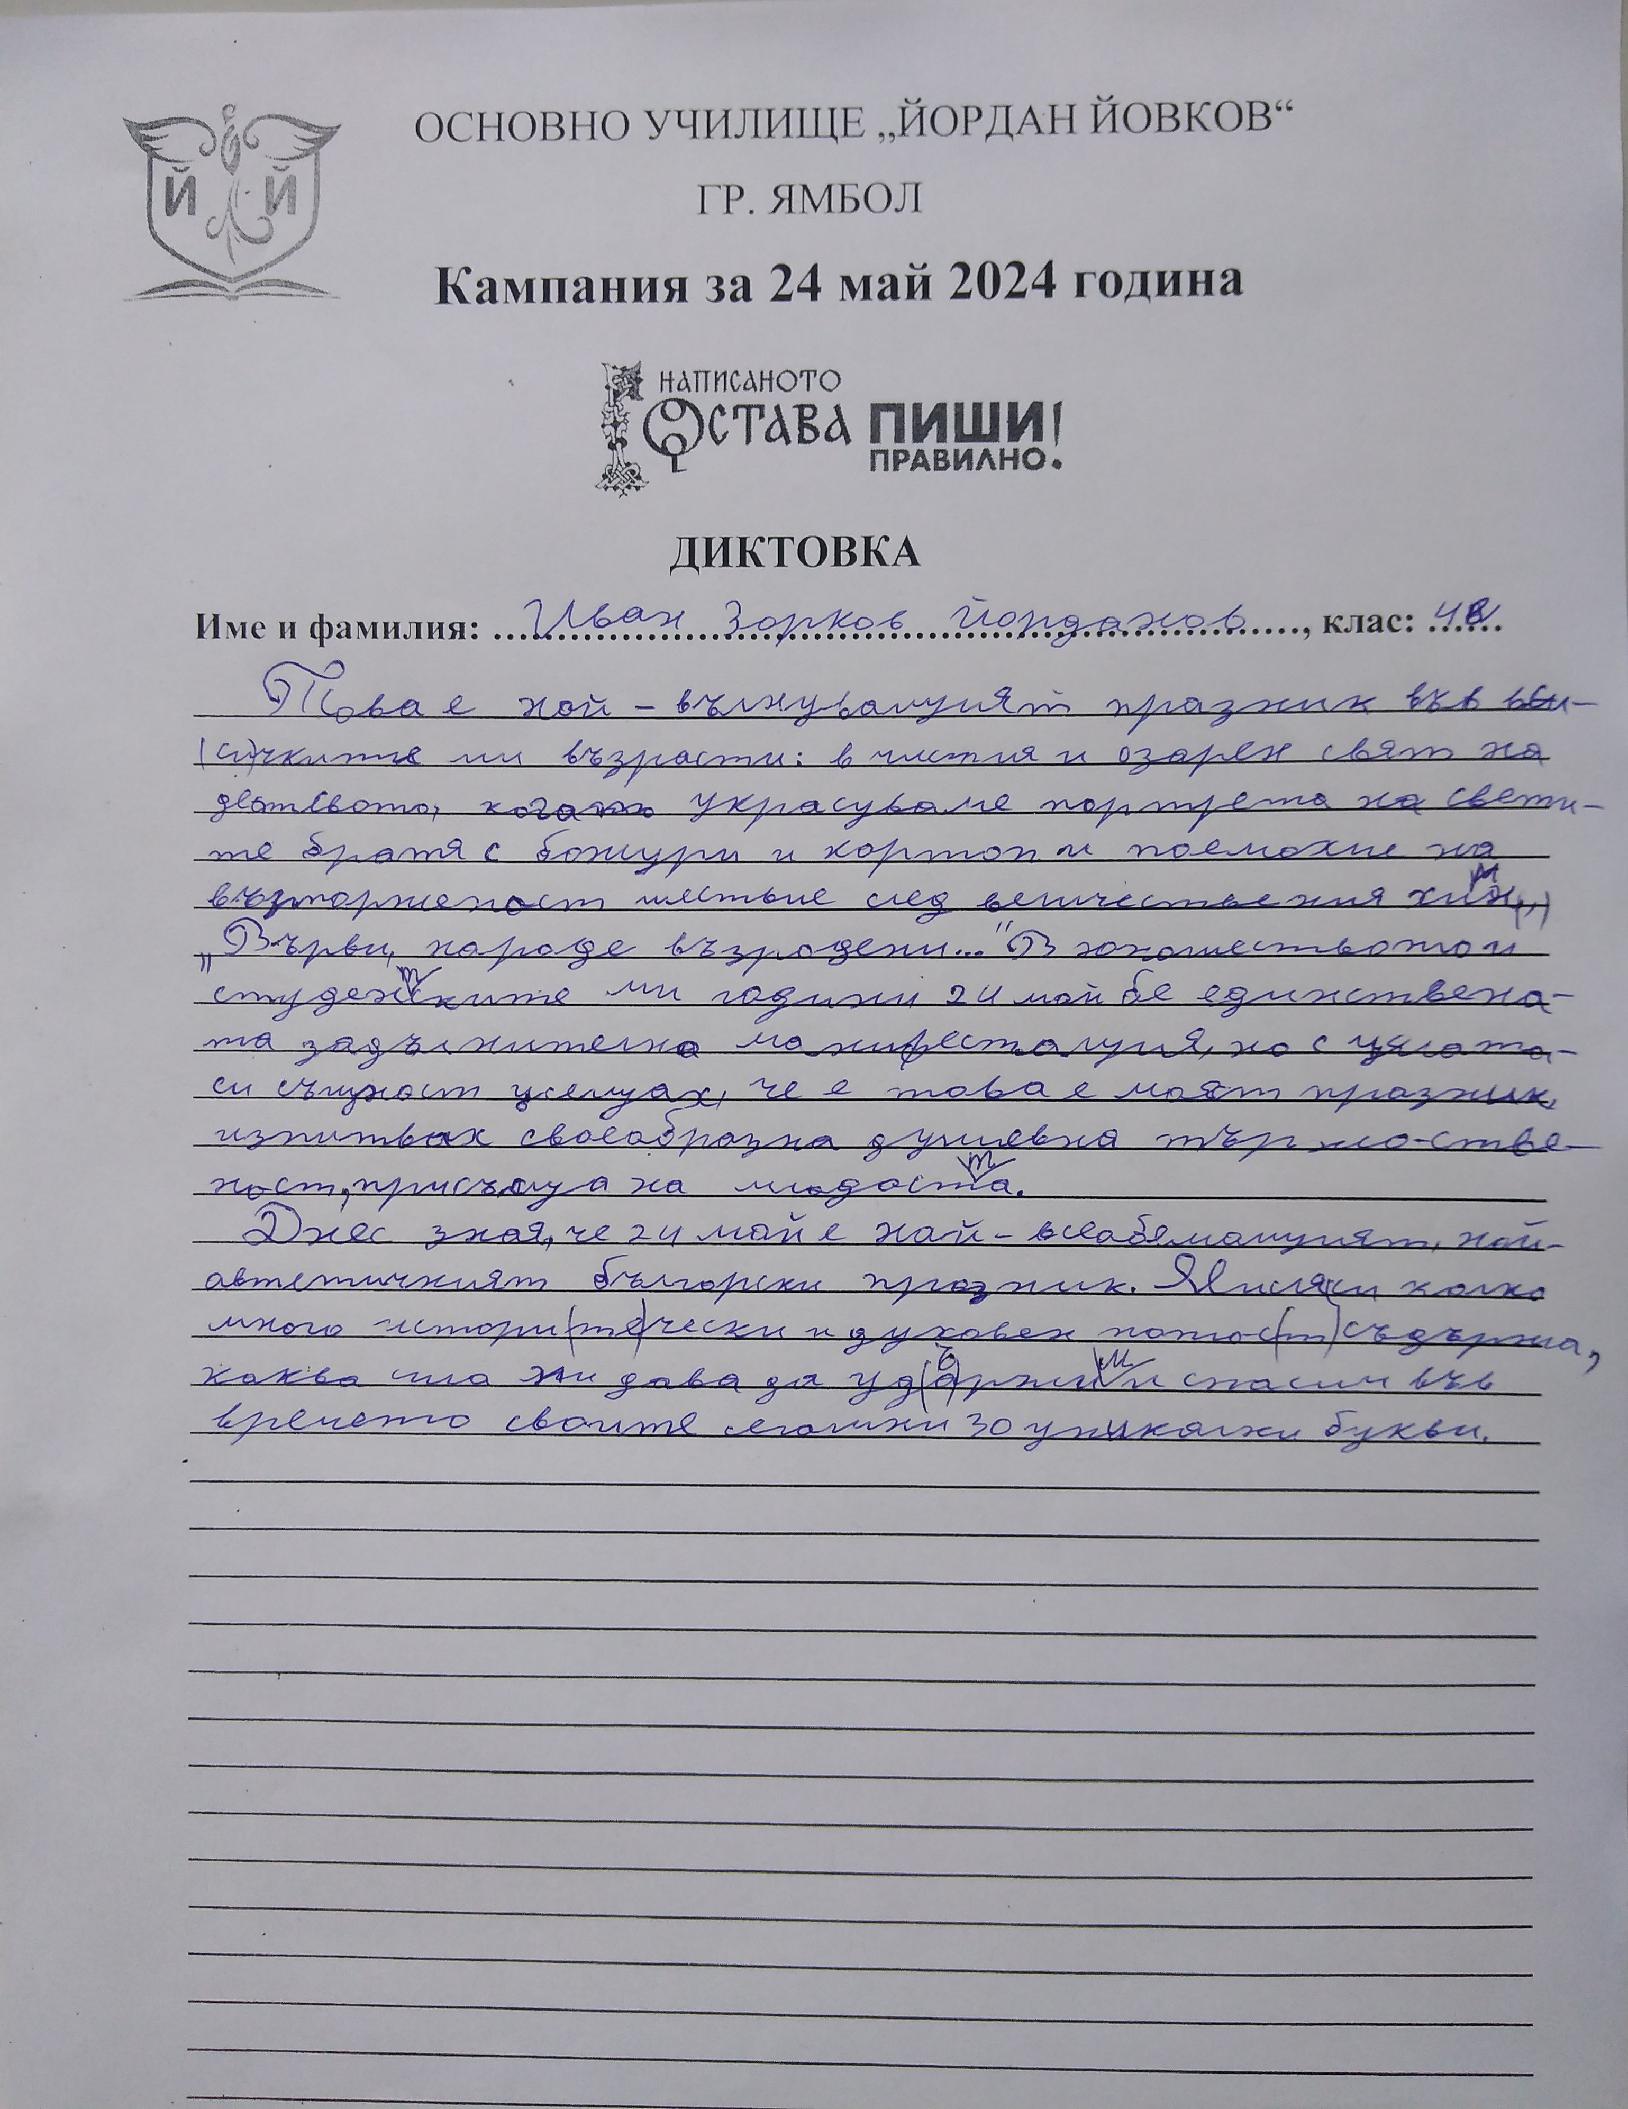 Й Й
ОСНОВНО УЧИЛИЩЕ „ЙОРДАН ЙОВКОВ“
ГР. ЯМБОЛ
Кампания за 24 май 2024 година
НАПИСАНОТО
ОСТАВА ПИШИ!
ПРАВИЛНО.
ДИКТОВКА
Име и фамилия: Иван Зорков Йорданов, клас: 4В
Това е най-вълнуващият празник във вси-
(си)чките ми възрасти: в чистия и озарен свят на
детството, когато украсуваме портрета на свети-
те братя с божури и картон и поемахме на
възторженост шествие след величествения химн(,)
„Върви, народе възродени...“ В юношеството и
студентските ми години 24 май бе единствена-
та задължителна манифестация, но с цялата
си същност усещах, че е това е моят празник,
изпитвах своеобразна душевна тържестве-
ност, присъща на младостта.
Днес зная, че 24 май е най-всеобемащият, най-
автетичният български празник. Мисля си колко
много истори(те)чески и духовен пато(ст) съдържа,
каква сила ни дава да уд(а)ържим и спасим във
времето своите сегашни 30 уникални букви.